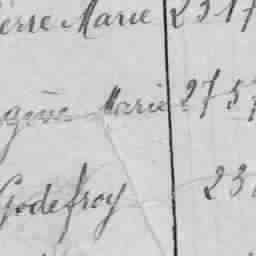 erre Marie 2317
gène Marie 2757
Godefroy 23